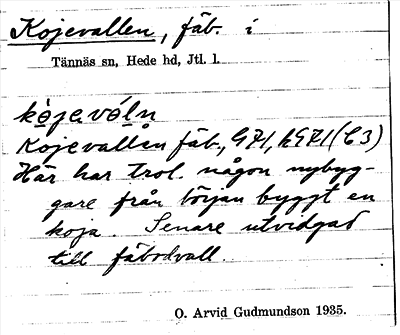 Kojevallen, fäb. i
Tännäs sn, Hede hd, Jtl. l.
Kojevallen fäb., G71, hG71 (C3)
Här har trol. någon nybyg-
gare från början byggt en
koja. Senare utvidgad
till fäbodvall.
O. Arvid Gudmundson 1935.